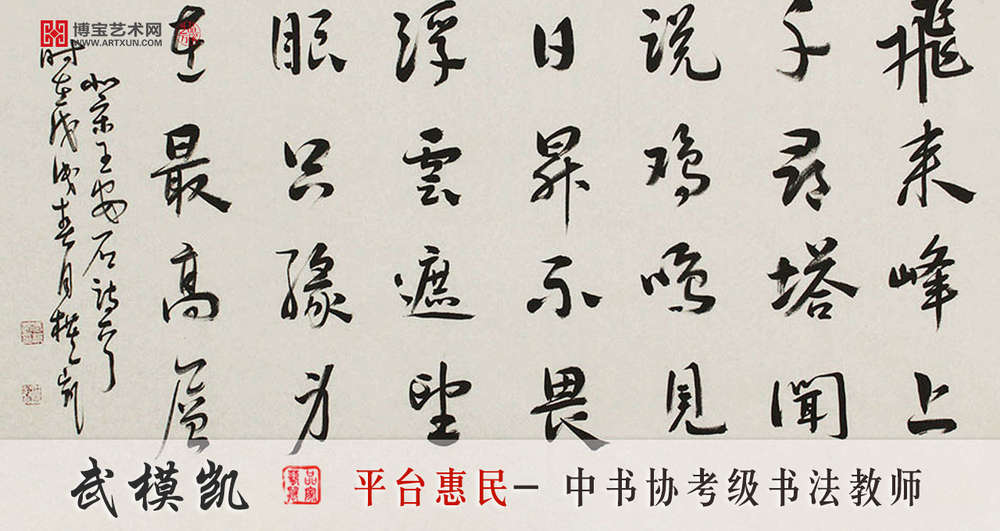 博宝艺术网
WWW.ARTXUN.COM
飛来峰上
千尋塔聞
说鸡鳴見
日昇不畏
浮雲遮望
眼只緣身
在最高層
北宋王安石詩
时在戊戌春月模凯
武模凯
平台惠民– 中书协考级书法教师